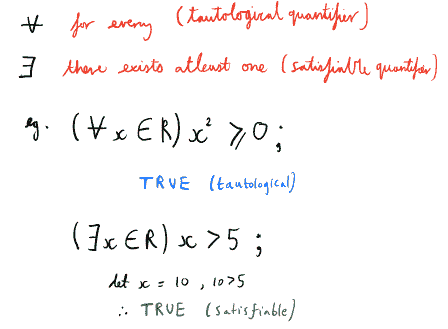 ∀ for every (tautological quantifier)
∃ there exists atleast one (satisfiable quantifier)
eg. (∀x∈R) x² ⩾ 0 ;
TRUE (tautological)
(∃x∈R) x > 5 ;
let x = 10 , 10>5
∴ TRUE (satisfiable)